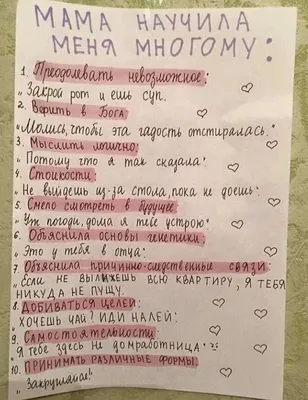 МАМА НАУЧИЛА
МЕНЯ МНОГОМУ:
1. Преодолевать невозможное:
„Закрой рот и ешь суп.
2. Верить в Бога
„Молись, чтобы эта гадость отстиралась.“
3. Мыслить логично:
„Потому что я так сказала“
4. Стойкости:
„Не выйдешь из-за стола, пока не доешь“.
5. Смело смотреть в будущее
„Уж погоди, дома я тебе устрою“
6. Объяснила основы генетики:
„Это у тебя в отца“
7. Объяснила причинно-следственные связи
„Если не вылижешь всю квартиру, я тебя
никуда не пущу.
8. Добиваться целей:
Хочешь чай? Иди налей:
9. Самостоятельности:
Я тебе здесь не домработница“
10. Принимать различные формы
„Закрушаие!“